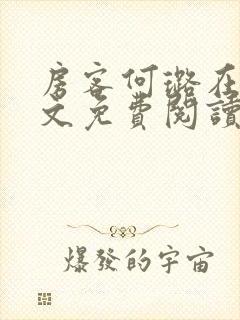 房客何璐在
文免費閱讀
爆發的宇宙